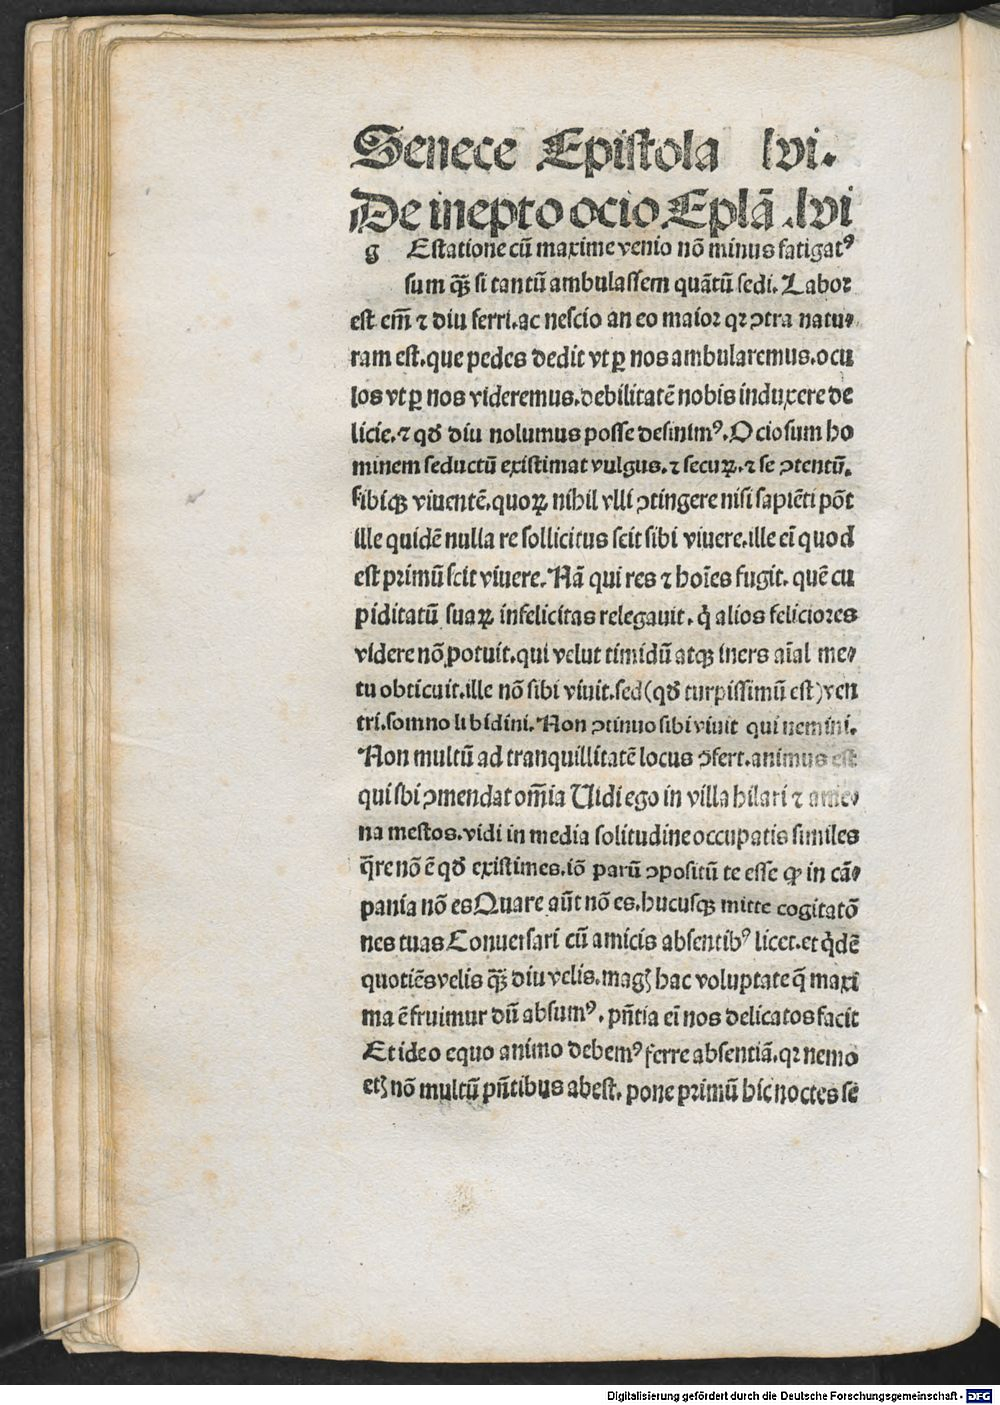 Senece Epistola lvi.
De inepto ocio Eplā .lvi
g Estatione cū maxime venio nō minus fatigatꝰ
sum qꝫ̄ si tantū ambulassem quātū sedi. Labor
est em̄ ⁊ diu ferri. ac nescio an eo maior qꝛ ↄtra natu⸗
ram est. que pedes dedit vt ꝑ nos ambularemus. ocu
los vt ꝑ nos videremus. debilitatē nobis induxere de
licie. ⁊ qđ diu nolumus posse desinimꝰ. Ociosum ho
minem seductū existimat vulgus. ⁊ securꝝ. ⁊ se ↄtentū.
sibiqꝫ viuentē. quoꝝ nihil vlli ↄtingere nisi sapiēti pōt
ille quidē nulla re sollicitus scit sibi viuere. ille ei̅ quod
est primū scit viuere. Nā qui res ⁊ hoīes fugit. quē cu
piditatū suaꝝ infelicitas relegauit. q̇ alios feliciores
videre nō potuit. qui velut timidū atqꝫ iners aīal me⸗
tu obticuit. ille nō sibi viuit. sed (qđ turpissimū est) ven
tri. somno libidini. Non ↄtinuo sibi viuit qui nemini.
Non multū ad tranquillitatē locus ↄfert. animus est
qui sibi ↄmendat om̄ia Uidi ego in villa hilari ⁊ ame⸗
na mestos. vidi in media solitudine occupatis similes
q̄re nō ē qđ existimes. iō parū ↄpositū te esse ꝙ in cā⸗
pania nō es Quare aūt nō es. hucusqꝫ mitte cogitatō
nes tuas Conuersari cū amicis absentibꝰ licet. et q̇dē
quotiēs velis qꝫ̄ diu velis. magꝭ hac voluptate q̄ maxi
ma ē fruimur dū absumꝰ. pn̄tia ei̅ nos delicatos facit
Et ideo equo animo debemꝰ ferre absentiā. qꝛ nemo
etꝫ nō multū pn̄tibus abest. pone primū hic noctes se̅